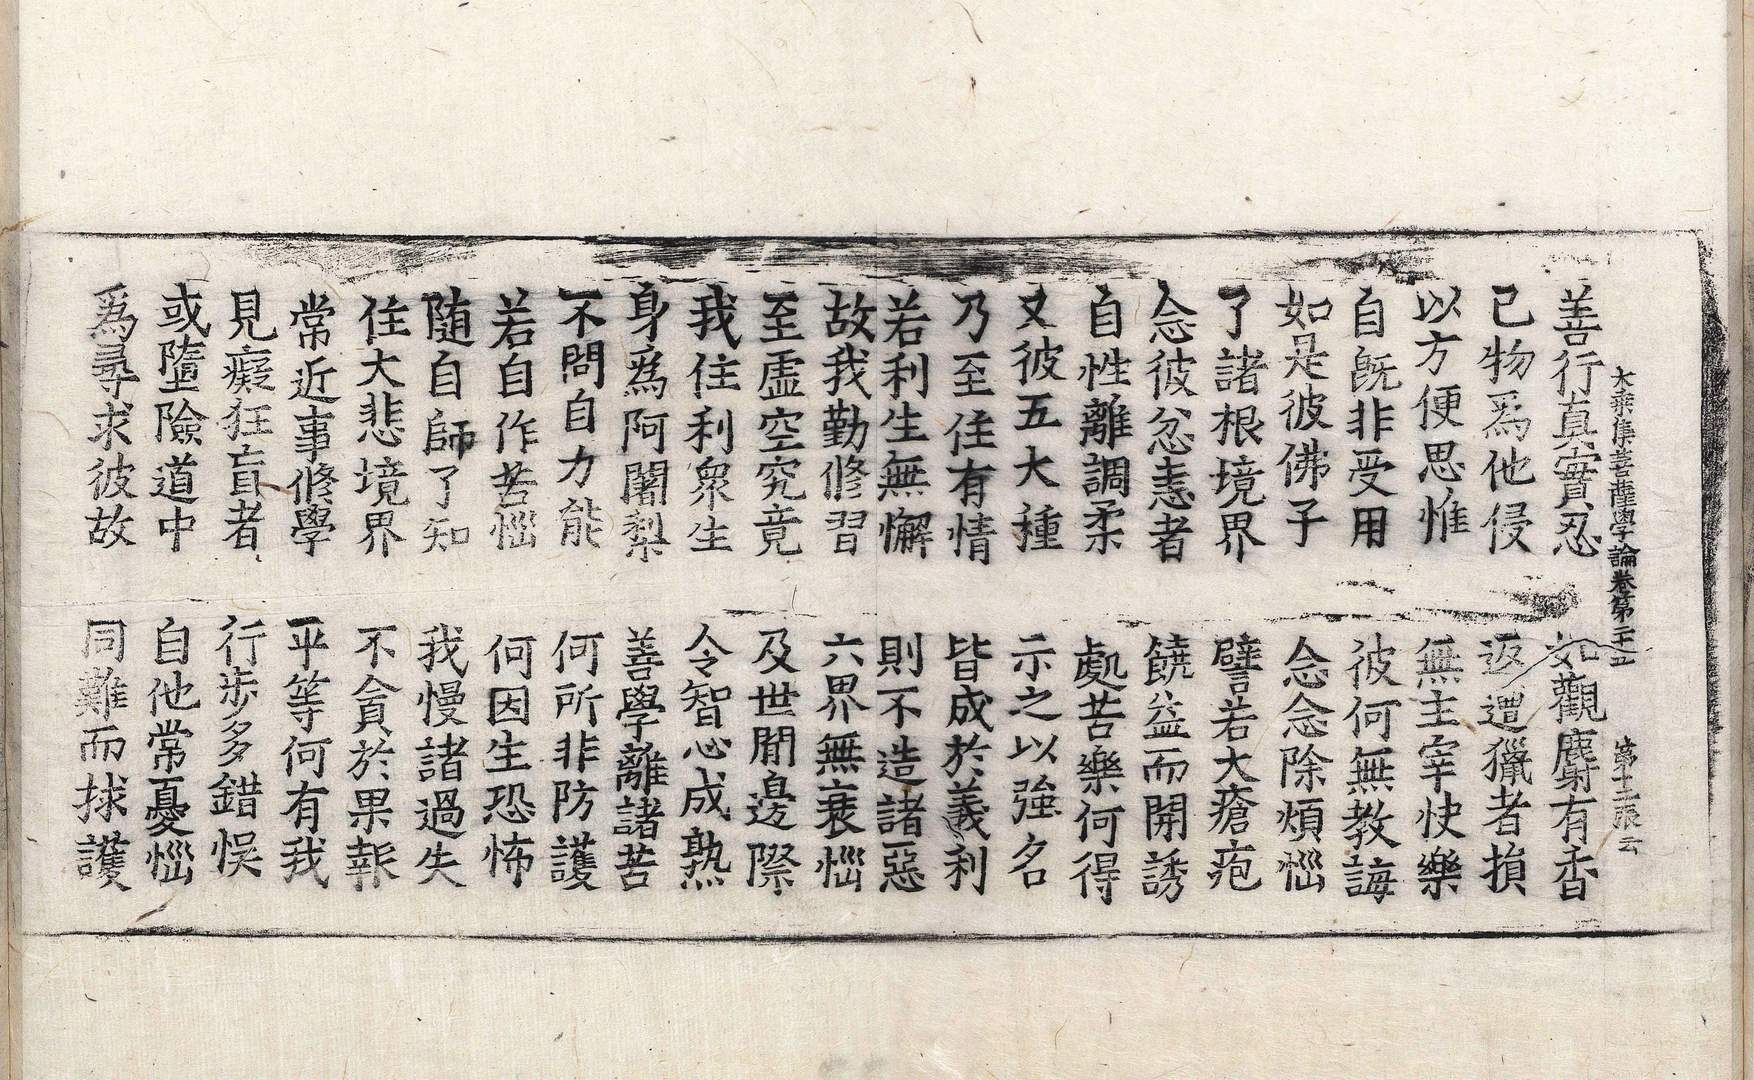 大乘集菩薩學論卷第二十五 第十二張 云
善行真實忍 如觀麝有香
已物爲他侵 返遭獵者損
以方便思惟 無主宰快樂
自旣非受用 彼何無教誨
如是彼佛子 念念除煩惱
了諸根境界 譬若大瘡疱
念彼忿恚者 饒益而開誘
自性離調柔 處苦樂何得
又彼五大種 示之以強名
乃至住有情 皆成於義利
若利生無懈 則不造諸惡
故我勤修習 六界無衰惱
至虛空究竟 及世間邊際
我住利衆生 令智心成熟
身爲阿闍梨 善學離諸苦
不問自力能 何所非防護
若自作苦惱 何因生恐怖
随自師了知 我慢諸過失
住大悲境界 不貪於果報
常近事修學 平等何有我
見癡狂盲者 行步多錯悞
或墮險道中 自他常憂惱
爲尋求彼故 同難而捄護